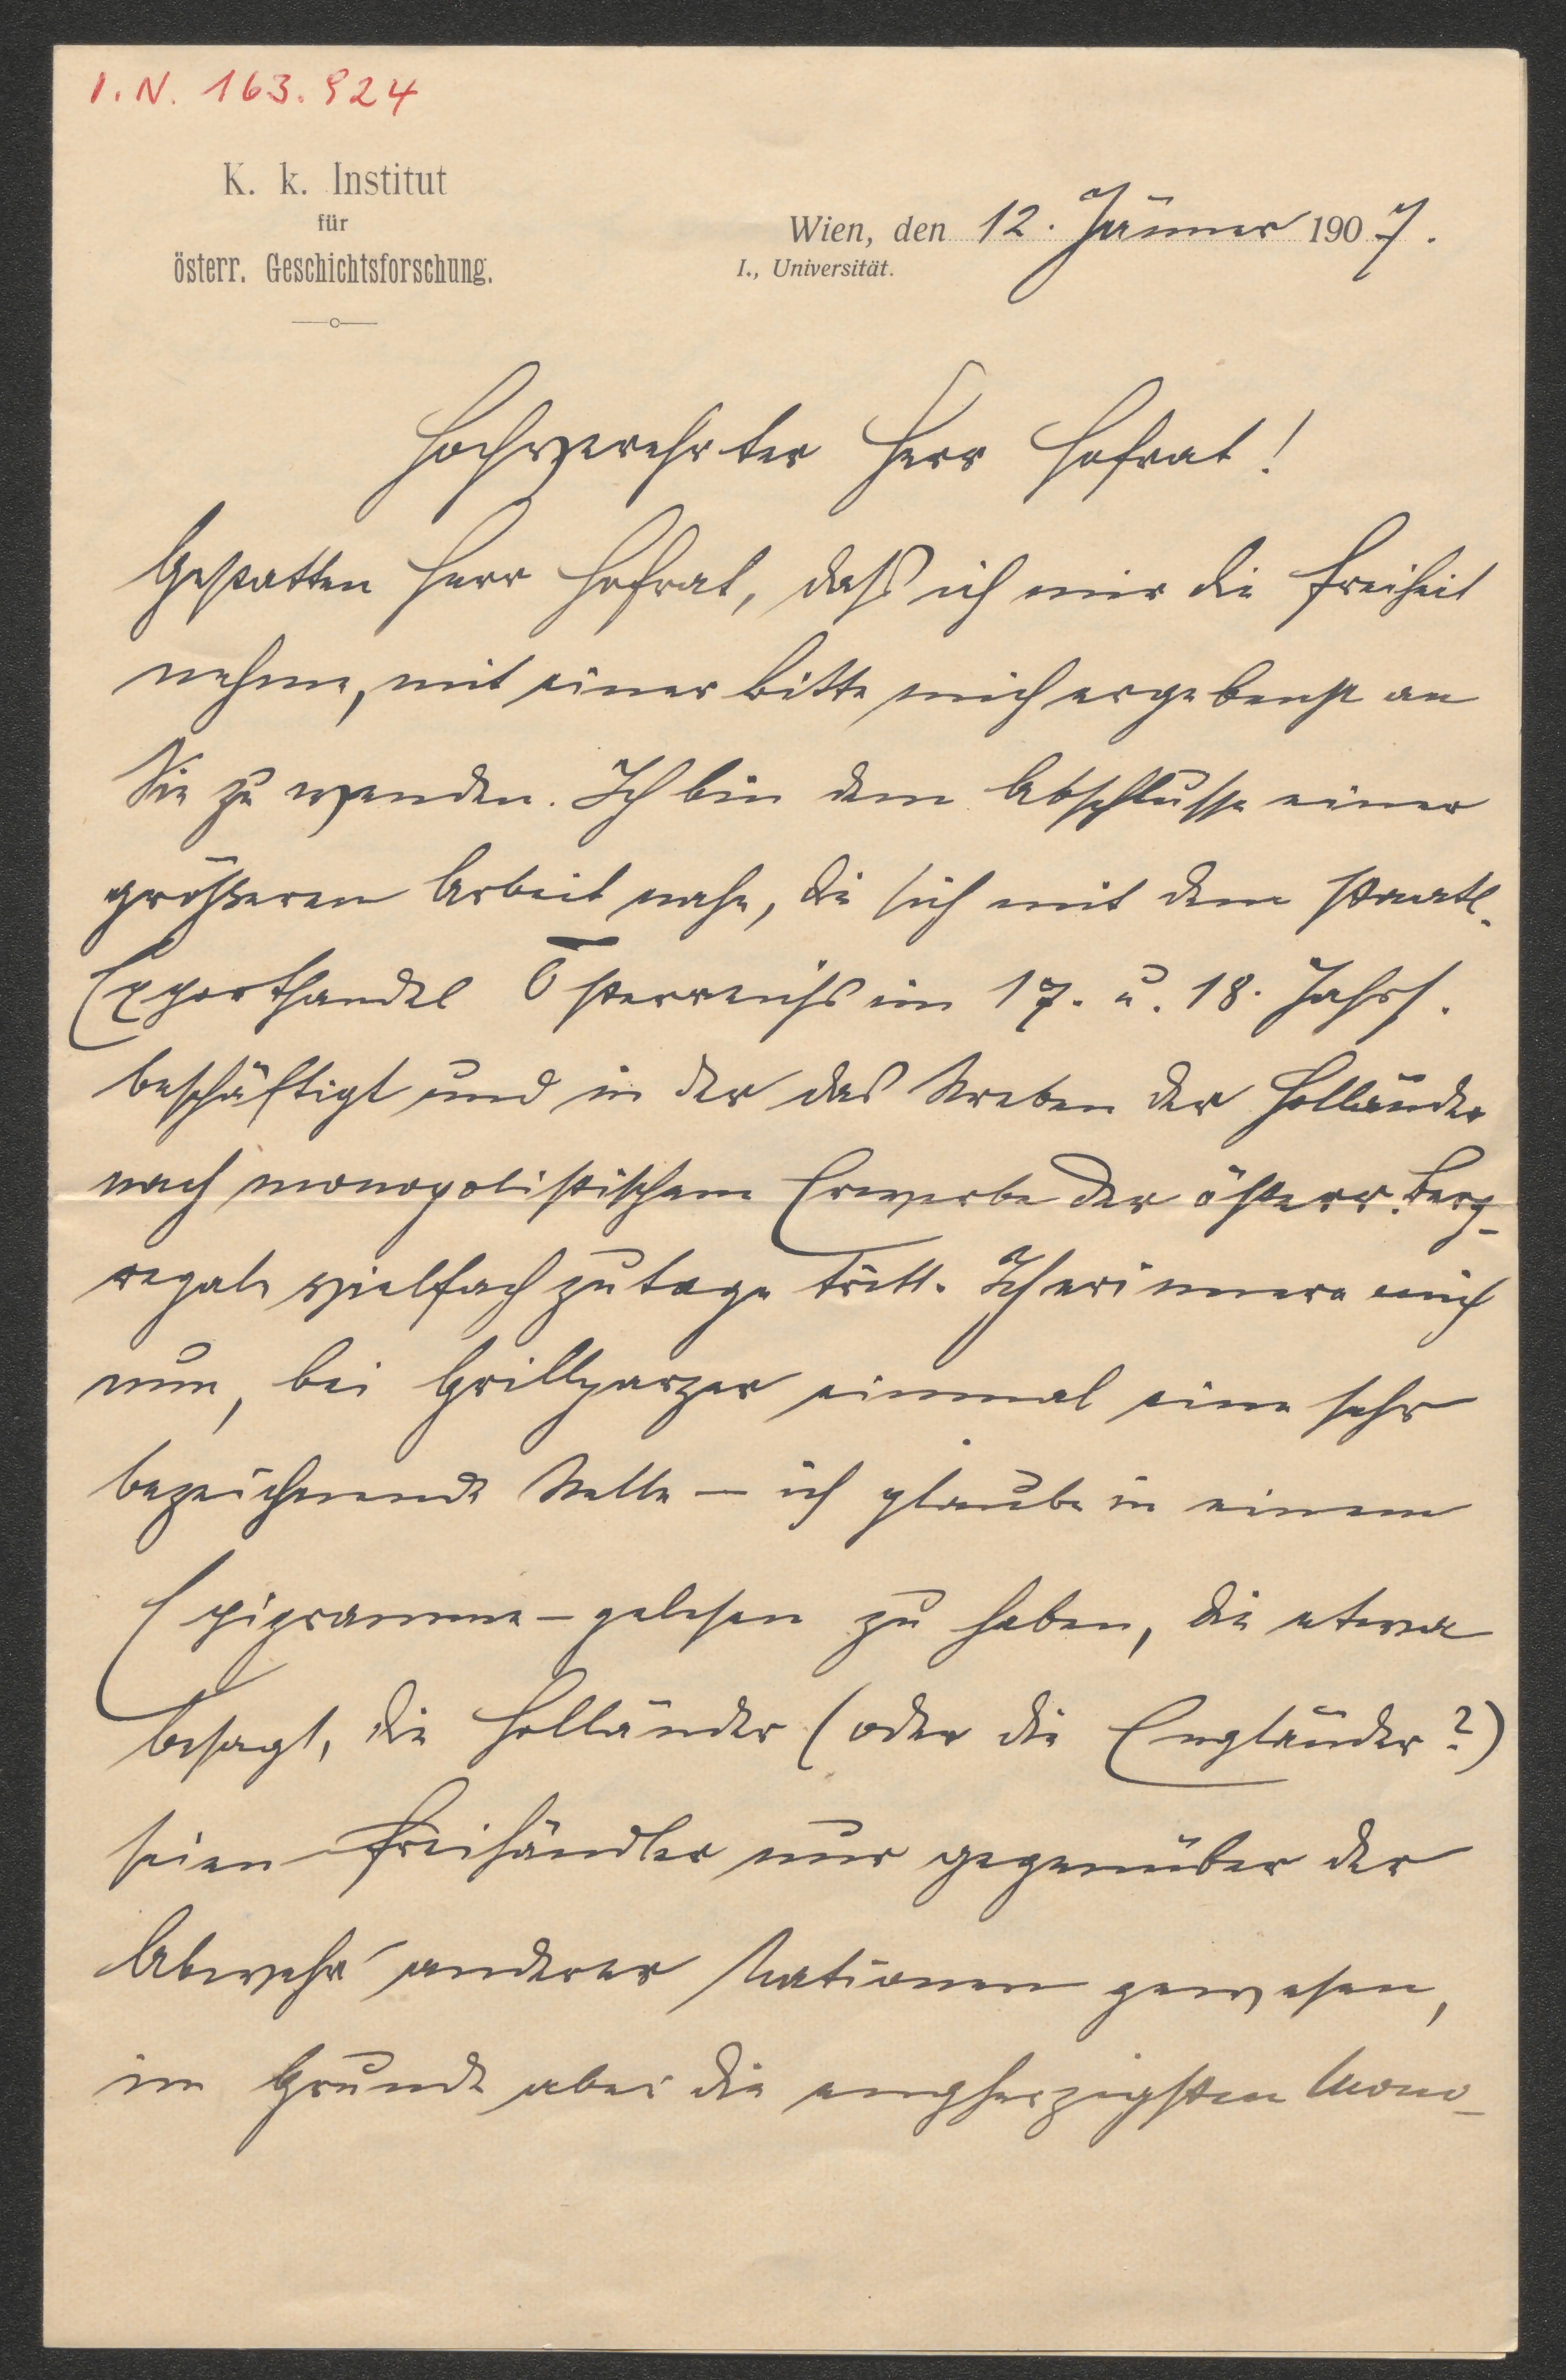 I.N. 163.924
K. k. Institut
für
österr. Geschichtsforschung.
Wien, den 12. Jänner 1907.
I., Universität.
Hochverehrter Herr Hofrat!
Gestatten Herr Hofrat, daß ich mir die Freiheit
nehme, mit einer Bitte mich ergebenst an
Sie zu wenden. Ich bin dem Abschlusse einer
größeren Arbeit nahe, die sich mit dem staatl.
Exporthandel Österreichs im 17. u. 18. Jahrh.
beschäftigt und in der das Streben der Holländer
nach monopolistischem Erwerbe der österr. Berg-
regale vielfach zutage tritt. Ich erinnere mich
nun, bei Grillparzer einmal eine sehr
bezeichnende Stelle – ich glaube in einem
Epigramme – gelesen zu haben, die etwa
besagt, die Holländer (oder die Engländer?)
seien Freihändler nur gegenüber der
Abwehr anderer Nationen gewesen,
im Grunde aber die engherzigsten Mono-